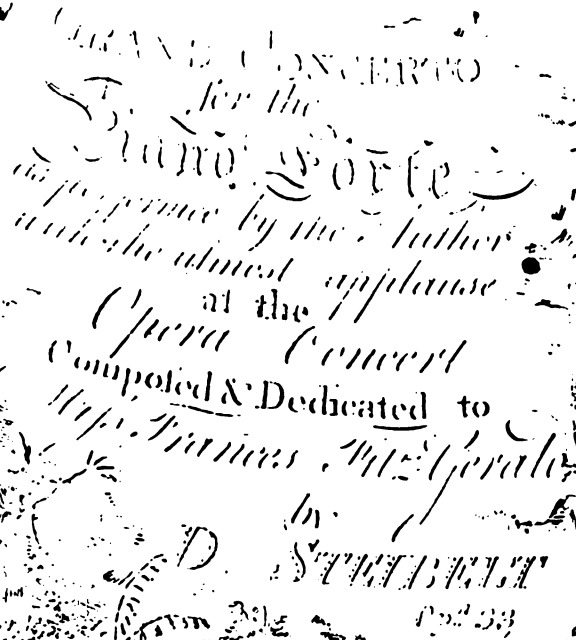 GRAND CONCERTO
for the
Piano Forte
as performed by the Author
with the utmost applause
at the
Opera Concert
Composed & Dedicated to
Miss Frances Fitz Gerald
by
D. STEIBELT
Op. 33